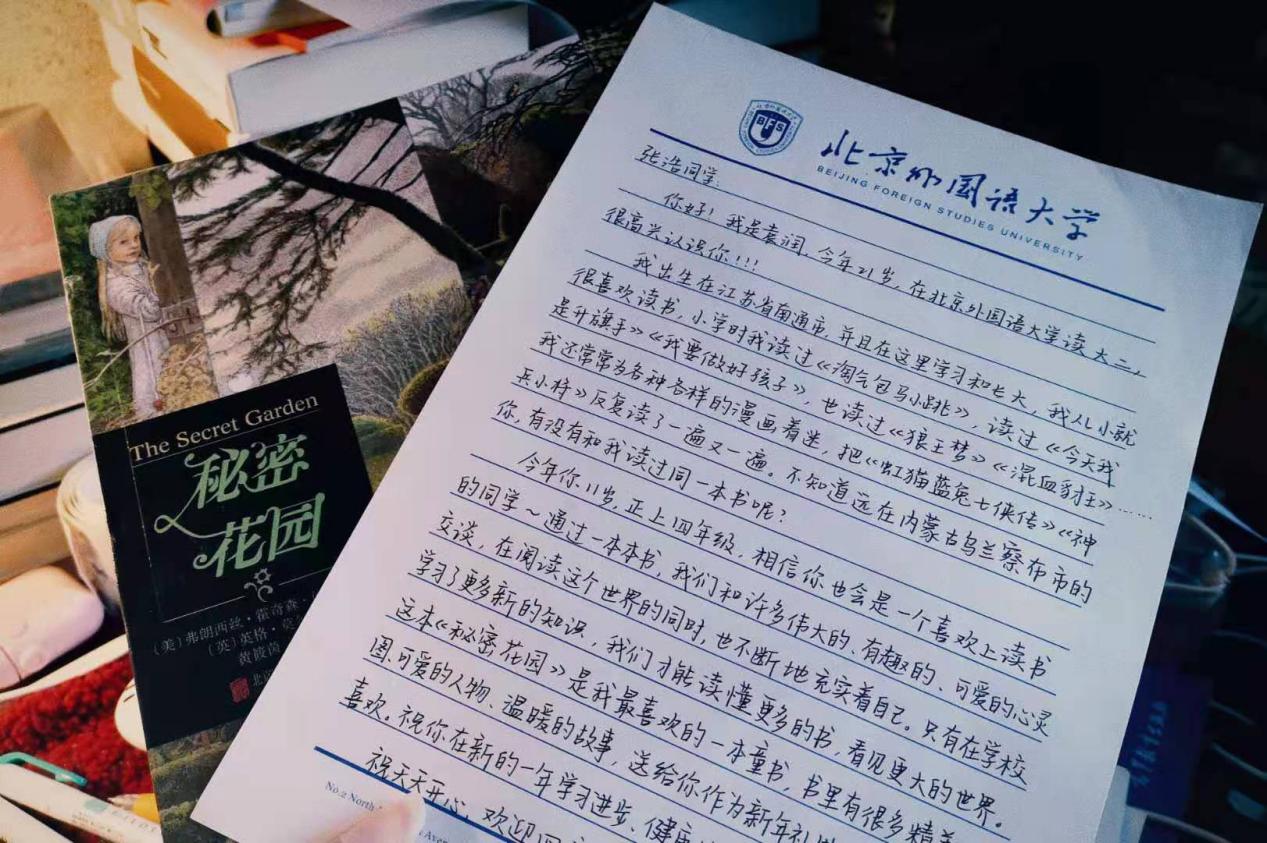 The Secret Garden
秘密
花园
(美)弗朗西丝·霍奇森·
(英)英格·莫
黄筱茵
北京
BFS
北京外国语大学
BEIJING FOREIGN STUDIES UNIVERSITY
张浩同学:
你好!我是袁润,今年21岁,在北京外国语大学读大二,
很高兴认识你!!!
我出生在江苏省南通市,并且在这里学习和长大,我从小就
很喜欢读书,小学时我读过《淘气包马小跳》,读过《今天我
是升旗手》《我要做好孩子》,也读过《狼王梦》《混血豺王》……
我还常常为各种各样的漫画着迷,把《虹猫蓝兔七侠传》《神
兵小将》反复读了一遍又一遍。不知道远在内蒙古乌兰察布市的
你,有没有和我读过同一本书呢?
今年你11岁,正上四年级,相信你也会是一个喜欢上读书
的同学~通过一本本书,我们和许多伟大的、有趣的、可爱的心灵
交谈,在阅读这个世界的同时,也不断地充实着自己。只有在学校
学习了更多新的知识,我们才能读懂更多的书,看见更大的世界。
这本《秘密花园》是我最喜欢的一本童书,书里有很多精美
图、可爱的人物、温暖的故事,送给你作为新年礼
喜欢。祝你在新的一年学习进步、健康
祝天天开心,欢迎回
No.2 North